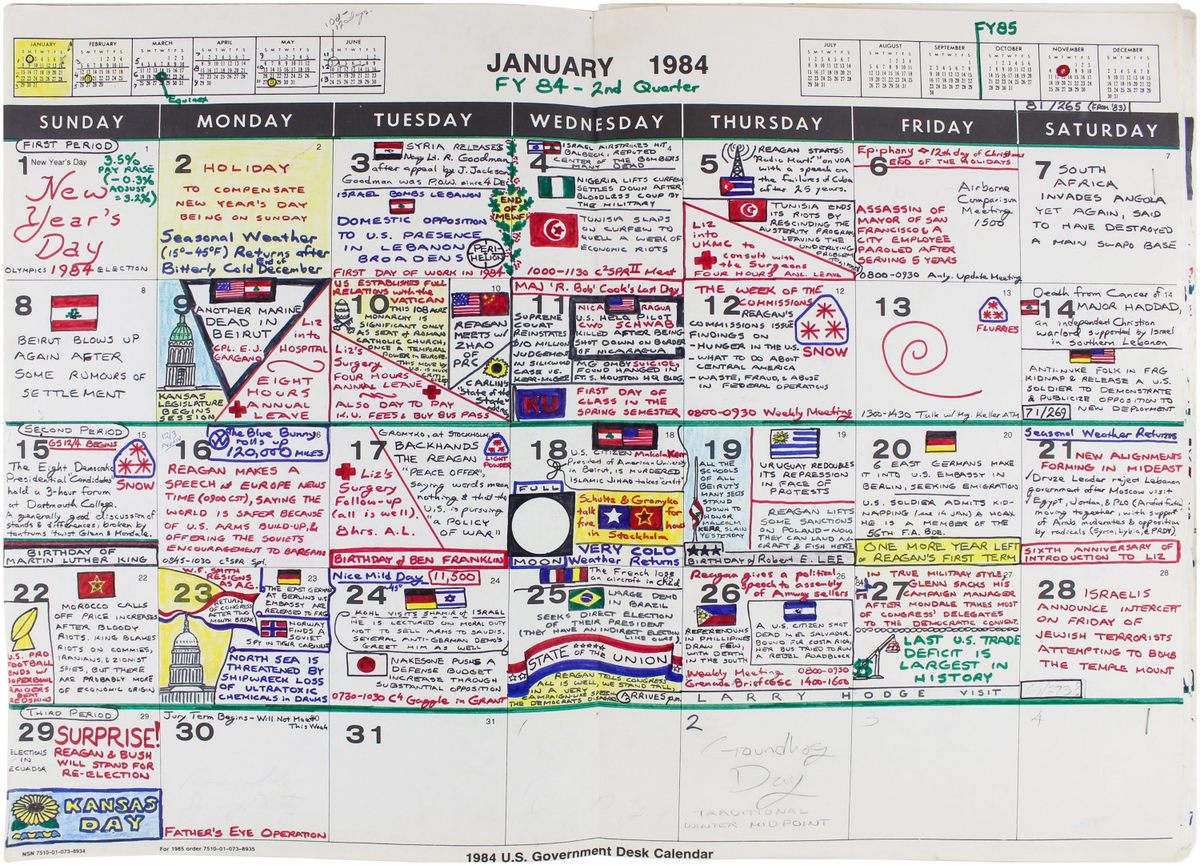 JANUARY 1984
FY 84 - 2nd Quarter
FY85
Equinox
JANUARY
FEBRUARY
MARCH
APRIL
MAY
JUNE
JULY
AUGUST
SEPTEMBER
OCTOBER
NOVEMBER
DECEMBER
81/265 (FROM '83)
SUNDAY
MONDAY
TUESDAY
WEDNESDAY
THURSDAY
FRIDAY
SATURDAY
FIRST PERIOD
1
New Year's Day
3.5%
PAY RAISE
(-0.3%
ADJUST
= 3.2%)
New
Year's
Day
OLYMPICS 1984 ELECTION
2
HOLIDAY
TO COMPENSATE
NEW YEAR'S DAY
BEING ON SUNDAY
Seasonal Weather
(15°-45°F) Returns after
End of
Bitterly Cold December
3
SYRIA RELEASES
after appeal by J. Jackson
Goodman was P.O.W. since 4 Dec
ISRAEL BOMBS LEBANON
DOMESTIC OPPOSITION
TO U.S. PRESENCE
IN LEBANON
BROADENS
PERI-
HELION
FIRST DAY OF WORK IN 1984
4
ISRAEL AIRSTRIKES HIT
CENTER OF THE BOMBERS
END
OF
XMEWF
NIGERIA LIFTS CURFEW
SETTLES DOWN AFTER
BLOODLESS COUP BY
THE MILITARY
TUNISIA SLAPS
ON CURFEW TO
QUELL A WEEK OF
ECONOMIC RIOTS
1000-1130 C²SPR II Meet
5
REAGAN STARTS
"Radio Marti" on VOA
with a speech on
the Failure of Cuba
after 25 years.
TUNISIA ENDS
ITS RIOTS BY
RESCINDING THE
AUSTERITY PROGRAM
LEAVING THE
UNDERLYING
PROBLEM
Liz
into
UKMC to
consult with
the Surgeons
FOUR HOURS ANL. LEAVE
Epiphany 12th day of Christmas
END OF THE HOLIDAYS
6
Airborne
Comparison
Meeting
1500
ASSASSIN OF
MAYOR OF SAN
FRANCISCO &
CITY EMPLOYEE
PAROLED AFTER
SERVING 5 YEARS
0800-0930 Anly. Update Meeting
7
SOUTH
AFRICA
INVADES ANGOLA
YET AGAIN, SAID
TO HAVE DESTROYED
A MAIN SWAPO BASE
8
BEIRUT BLOWS UP
AGAIN AFTER
SOME RUMOURS OF
SETTLEMENT
9
ANOTHER MARINE
DEAD IN
BEIRUT
CPL. E.J.
GARGANO
KANSAS
LEGISLATURE
BEGINS
SESSION
Liz
into
HOSPITAL
EIGHT
HOURS
ANNUAL
LEAVE
10
US ESTABLISHED FULL
RELATIONS with the
VATICAN
THIS 108 ACRE
MONARCHY IS
SIGNIFICANT ONLY
AS SEAT OF ROMAN
CATHOLIC CHURCH,
REAGAN
MEETS w/
ZHAO
OF
PRC
Liz's
Surgery
FOUR HOURS
ANNUAL LEAVE
CARLIN'S
"State of the
State"
ALSO DAY TO PAY
K.U. FEES & BUY BUS PASS
MAJ 'R. Bob' Cook's Last Day
11
SUPREME
COURT
REINSTATES
$10 MILLION
JUDGEMENT
IN SILKWOOD
CASE VS.
KERR-McGEE
NICA RAGUA
U.S. HELO PILOT
CWO SCHWAB
KILLED AFTER BEING
SHOT DOWN ON BORDER
OF NICARAGUA
FOUND HANGED IN
FT. S. HOUSTON HQ BLDG
KU
FIRST DAY OF
CLASS IN THE
SPRING SEMESTER
THE WEEK OF THE
COMMISSIONS
12
REAGAN'S
COMMISSIONS ISSUE
FINDINGS ON
- HUNGER IN THE U.S.
- WHAT TO DO ABOUT
CENTRAL AMERICA
- WASTE, FRAUD, & ABUSE
IN FEDERAL OPERATIONS
SNOW
0800-0930 Weekly Meeting
13
FLURRIES
1300-1430 Talk w/ Mg. Keller ATM
14
Death from Cancer of
MAJOR HADDAD,
an independent Christian
warlord supported by Israel
in southern Lebanon
ANTI-NUKE FOLK IN FRG
KIDNAP & RELEASE A U.S.
SOLDIER TO DEMONSTRATE
& PUBLICIZE OPPOSITION TO
NEW DEPLOYMENT
71/269
SECOND PERIOD
15
GS12/4 BEGINS
The Eight Democratic
Presidential Candidates
hold a 3-hour forum
at Dartmouth College.
A generally good discussion of
stands & differences, broken by
tantrums twixt Glenn & Mondale.
SNOW
BIRTHDAY OF
MARTIN LUTHER KING
16
The Blue Bunny
rolls up
120,000 MILES
REAGAN MAKES A
SPEECH at EUROPE NEWS
TIME (0900 CST), SAYING THE
WORLD IS SAFER BECAUSE
OF U.S. ARMS BUILD-UP, &
OFFERING THE SOVIETS
ENCOURAGEMENT TO BARGAIN
0845-1030 C²SPR Spl.
17
GROMYKO, at STOCKHOLM
BACKHANDS
THE REAGAN
"PEACE OFFER",
saying words mean
nothing & that the
U.S. IS PURSUING
A POLICY
OF WAR"
LIGHT
POWDER
Liz's
Surgery
Follow up
(all is well).
8 hrs. A.L.
BIRTHDAY OF BEN FRANKLIN
18
U.S. CITIZEN Malcolm Kerr
President of American University
in Beirut, is murdered
ISLAMIC JIHAD takes credit
FULL
MOON
Schultz & Gromyko
talk for
five hours
in Stockholm
VERY COLD
Weather Returns
19
ALL THE
SCHOOLS
OF ALL
BEIRUT'S
MANY SECTS
SHUT
DOWN TO
HONOR
MALCOLM
KERR, SLAIN
YESTERDAY
URUGUAY REDOUBLES
ITS REPRESSION
IN FACE OF
PROTESTS
REAGAN LIFTS
SOME SANCTIONS
ON POLAND - NOW
THEY CAN LAND AIR-
CRAFT & FISH HERE
Birthday of Robert E. LEE
20
6 EAST GERMANS MAKE
IT INTO U.S. EMBASSY IN
BERLIN, SEEKING EMIGRATION
U.S. SOLDIER ADMITS KID-
NAPPING (me 14 JAN) A HOAX
HE IS A MEMBER OF THE
56TH F.A. BDE.
ONE MORE YEAR LEFT
OF REAGAN'S FIRST TERM
Seasonal Weather Returns
21
NEW ALIGNMENTS
FORMING IN MIDEAST
Druze Leader rejoed Lebanon
government after Moscow visit
Egypt, Jordan, & PLO (Arafat faction)
moving together, with support
of Arab moderates & opposition
by radicals (Syria, Lybia, & PRDY)
SIXTH ANNIVERSARY OF
INTRODUCTION TO LIZ
22
MOROCCO CALLS
OFF PRICE INCREASES
AFTER BLOODY
RIOTS. KING BLAMES
RIOTS ON COMMIES,
IRANIANS, & ZIONIST
SPIES, BUT THERE
ARE PROBABLY MORE
OF ECONOMIC ORIGIN
U.S. PRO
FOOTBALL
ENDS
SUPERBOWL
RAIDERS
BEAT
REDSKINS
23
W.F. SMITH
RESIGNS
AS A.G.
RETURN
OF CONGRESS
AFTER TWO
MONTH BREAK
THE EAST GERMANS
AT BERLIN U.S.
EMBASSY ARE
RELEASED TO FRG
NORWAY
FINDS A
SOVIET
SPY IN THEIR CABINET
NORTH SEA IS
THREATENED BY
SHIPWRECK LOSS
OF ULTRATOXIC
CHEMICALS IN DRUMS
Nice Mild Day 45° 11,500
24
KOHL VISITS SHAMIR of ISRAEL
HE IS LECTURED ON MORAL DUTY
NOT TO SELL ARMS TO SAUDIS.
SEVERAL ANTI-GERMAN DEMOS
GREET HIM AS WELL
NAKESONE PUSHES A
DEFENSE BUDGET
INCREASE THROUGH
SUBSTANTIAL OPPOSITION
0730-1030 C4 Gaggle in GRANT
25
The French lose
an aircraft in Chad
LARGE DEMO
IN BRAZIL
SEEKS DIRECT ELECTION
OF THEIR PRESIDENT
(THEY HAVE AN INDIRECT ELECTION
LIKE OURS)
STATE OF THE UNION
REAGAN TELLS CONGRESS
ALL IS WELL, WE STAND TALL,
IN A VERY
CAMPAIGN-LIKE SPEECH
ARRIVES p.m.
Reagan gives a political
speech to assembly
of Amway sellers
26
REFERENDUMS
IN PHILIPPINES
DRAW FEW,
& DEATH
IN THE SOUTH
A U.S. CITIZEN SHOT
DEAD IN EL SALVADOR.
BOUND FOR COSTA RICA,
HER BUS TRIED TO RUN
A REBEL ROADBLOCK
0800-0930
Weekly Meeting
Grenada Brief CGSC 1400-1600
LARRY HODGE VISIT
27
IN TRUE MILITARY STYLE,
GLENN SACKS HIS
CAMPAIGN MANAGER
AFTER MONDALE TAKES MOST
OF CONGRESS' DELEGATES
TO THE DEMOCRATIC CONVENT.
LAST U.S. TRADE
DEFICIT IS
LARGEST IN
HISTORY
28
ISRAELIS
ANNOUNCE INTERCEPT
ON FRIDAY OF
JEWISH TERRORISTS
ATTEMPTING TO BOMB
THE TEMPLE MOUNT
THIRD PERIOD
29
SURPRISE!
REAGAN & BUSH
WILL STAND FOR
RE-ELECTION
ELECTIONS
IN
ECUADOR
KANSAS
DAY
Jury Term Begins - Will Not Meet
This Week
30
FATHER'S EYE OPERATION
31
2
Groundhog
Day
TRADITIONAL
WINTER MIDPOINT
NSN 7510-01-073-8934
For 1985 order 7510-01-073-8935
1984 U.S. Government Desk Calendar